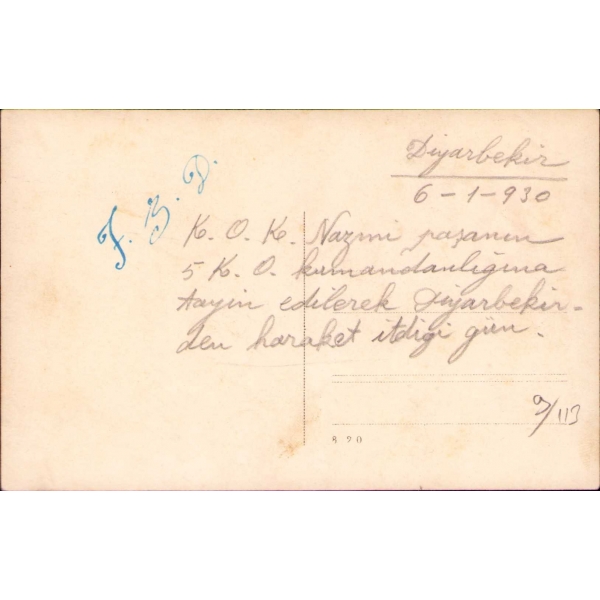 Diyarbekir
6-1-930
F. B. D.
K. O. K. Nazmi paşanın
5 K. O. kumandanlığına
tayin edilerek Diyarbekir-
den haraket itdigi gün.
9/113
890